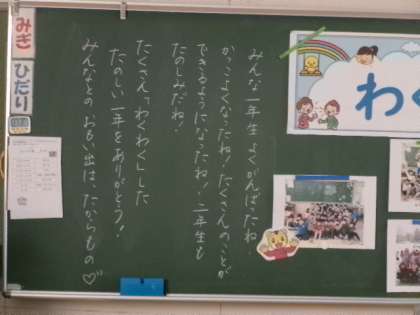 みぎ
ひだり
わく
みんな一年生よくがんばたね。
かっこよくなったね!たくさんのことが
できるようになったね!二年生も
たのしみだね!
たくさん「わくわく」した
たのしい一年をありがとう!
みんなとのおもい出は、たからもの♡